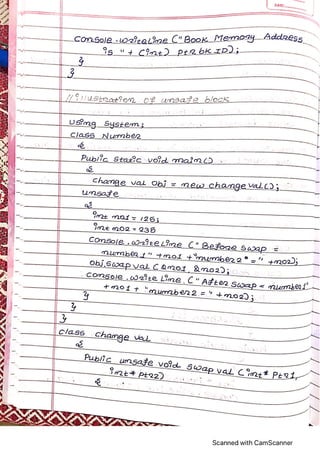 Console.writeLine ("Book Memory Address
is " + (int) ptr bk ID);
}
}
// illustration of unsafe block
using System;
class Number
{
Public Static void main()
{
change val obj = new change val();
unsafe
{
int no1 = 125;
int no2 = 235
Console.writeLine ("Before swap =
number1" + no1 + "number2 = " + no2);
obj.swap val (&no1, &no2);
Console.write Line ("After swap = number1"
+ no1 + "number2 = " + no2);
}
}
}
class change val
{
Public unsafe void swap val (int* ptr1,
int* ptr2)
{
Scanned with CamScanner